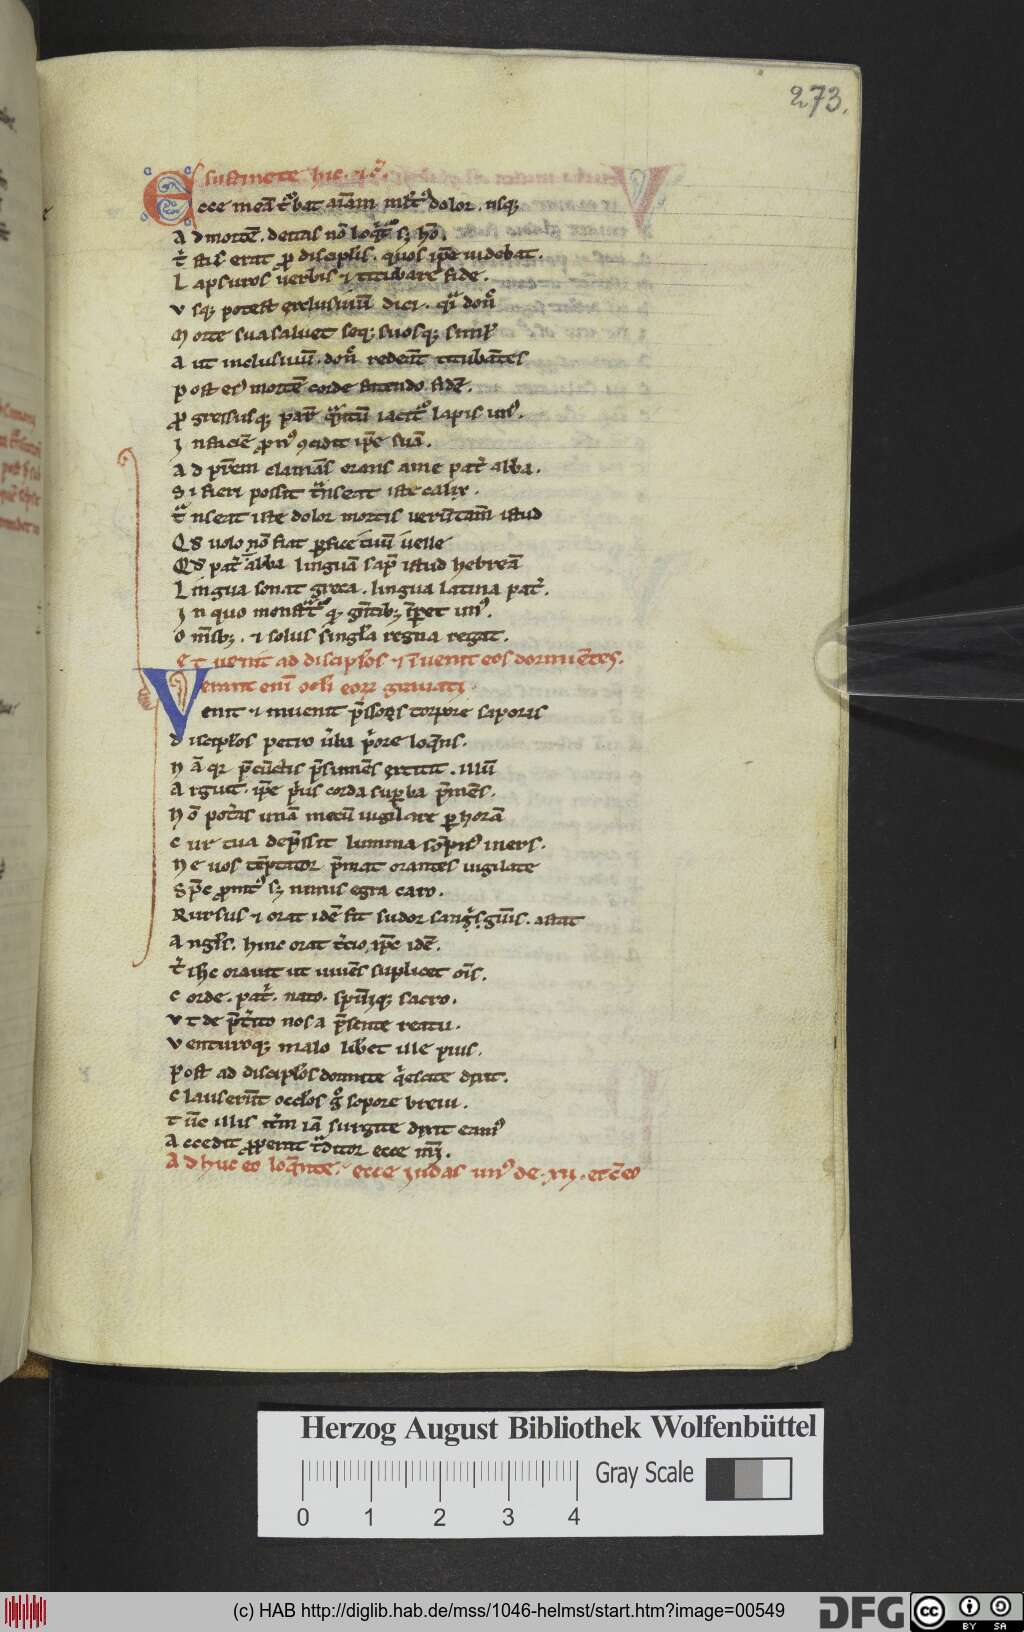 273.
sustinete hic. ⁊ c̄.
Ecce meā t᷑bat aīam mꝉtꝰ dolor. usq;
Ad mortē. deitas nō loq̄t᷑ sꝫ hō.
T᷑stis erat ꝓ disciplis. quos ip̄e uidebat.
Lapsuros uerbis ⁊ titubare fide.
Vsq; potest exclusiuū dici. q̄a don̄
Morte sua saluet seq; suosq; simꝉ
Aut inclusiuū. don̄ redeūt titubātes
Post eiꝰ mortē corde fitendo fidē.
Ꝓgressusq; parū q̄ntū iacit᷑ lapis unꝰ.
In faciē ꝓnꝰ ꝯcidit ip̄e suā.
Ad pr̄em clamās orans aiue pat̄ abba.
Si fieri possit t᷑nseat iste calix.
T᷑nseat iste dolor mortis uerūtam̄ istud
Qd̄ uolo nō fiat ꝑfice tuū uelle
Qd̄ pat̄ abba linguā sap̄ istud hebreā
Lingua sonat greca. lingua latina pat̄.
In quo monst᷑t᷑ q̄ gn̄tibꝫ īꝑet unꝰ.
Om̄ibꝫ. ⁊ solus singꝉa regna regat.
Et uenit ad disciplos ⁊ īuenit eos dormiētes.
Verant enī ocꝉi eoꝝ grauati.
Venit ⁊ inuenit p̄ssos torpore saporis
Discipꝉos petro ūba p̄ore loq̄ns.
Nā q̄ p̄cūctis p̄sumēs extitit. illū
Arguit. ip̄e p̄us corda suꝑba p̄mēs.
Nō pot̄as unā mecū uigilare ꝑ horā
Cur tua dep̄ssit lumina sōpnꝰ iners.
Ne uos tēptator p̄mat orantes uigilate
Sp̄c ꝓmtꝰ sꝫ nimis egra caro.
Rursus ⁊ orat idē fit sudor sang̣ṣguīs. astat
Angꝉs. hinc orat t̄cio, ip̄e idē.
T̄ ih̄c orauit ut uiuēs suplicet oīs.
Corde. pat̄. nato. sp̄uiq; sacro.
Vt de p̄t̄ito nos a p̄sente reatu.
Venturoq; malo lib̄et ille pius.
Post ad disciplos dormite q̄escite dixit.
Clauserūt occꝉos g̊ sopore breui.
Tūc illis it̄m iā surgite dixit eamꝰ
Accedit ꝓꝑerat t᷑ditor ecce mꝫ.
Adhuc eo loq̄nte. ecce Iudas unꝰ de. xij. et c̄ eo
Herzog August Bibliothek Wolfenbüttel
Gray Scale
0 1 2 3 4
(c) HAB http://diglib.hab.de/mss/1046-helmst/start.htm?image=00549
DFG
cc BY SA